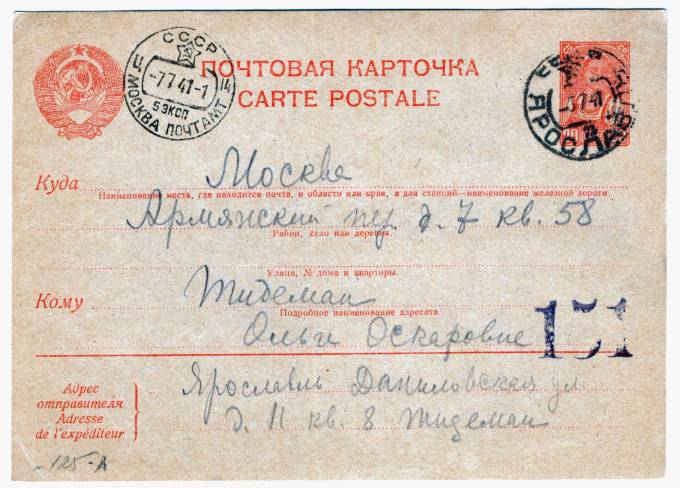 СССР
-7.7.41-1
5 ЭКСП
МОСКВА ПОЧТАМТ
ПОЧТОВАЯ КАРТОЧКА
CARTE POSTALE
ЯРОСЛАВ
Москва
Куда
Наименование места, где находится почта, и области или края, а для станций—наименование железной дороги.
Армянский пер. д. 7 кв. 58
Район, село или деревня.
Улица, № дома и квартиры.
Кому
Тидеман
Подробное наименование адресата.
Ольги Оскаровне
151
Ярославль Даниловская ул.
д. 11 кв. 8 Тидеман
Адрес
отправителя
Adresse
de l'expéditeur
125-А